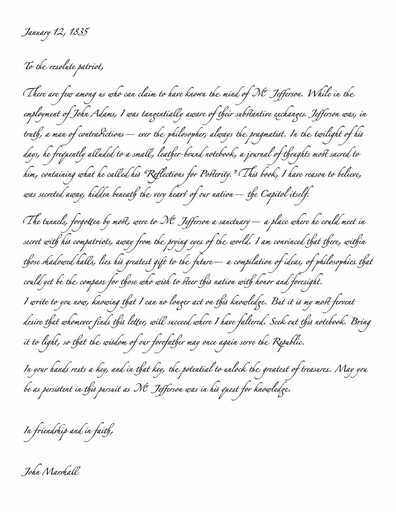 January 12, 1835
To the resolute patriot,
There are few among us who can claim to have known the mind of Mr. Jefferson. While in the
employment of John Adams, I was tangentially aware of their substantive exchanges. Jefferson was, in
truth, a man of contradictions — ever the philosopher, always the pragmatist. In the twilight of his
days, he frequently alluded to a small, leather-bound notebook, a journal of thoughts most sacred to
him, containing what he called his "Reflections for Posterity." This book, I have reason to believe,
was secreted away, hidden beneath the very heart of our nation — the Capitol itself.
The tunnels, forgotten by most, were to Mr. Jefferson a sanctuary — a place where he could meet in
secret with his compatriots, away from the prying eyes of the world. I am convinced that there, within
those shadowed halls, lies his greatest gift to the future — a compilation of ideas, of philosophies that
could yet be the compass for those who wish to steer this nation with honor and foresight.
I write to you now, knowing that I can no longer act on this knowledge. But it is my most fervent
desire that whomever finds this letter, will succeed where I have faltered. Seek out this notebook. Bring
it to light, so that the wisdom of our forefather may once again serve the Republic.
In your hands rests a key, and in that key, the potential to unlock the greatest of treasures. May you
be as persistent in this pursuit as Mr. Jefferson was in his quest for knowledge.
In friendship and in faith,
John Marshall